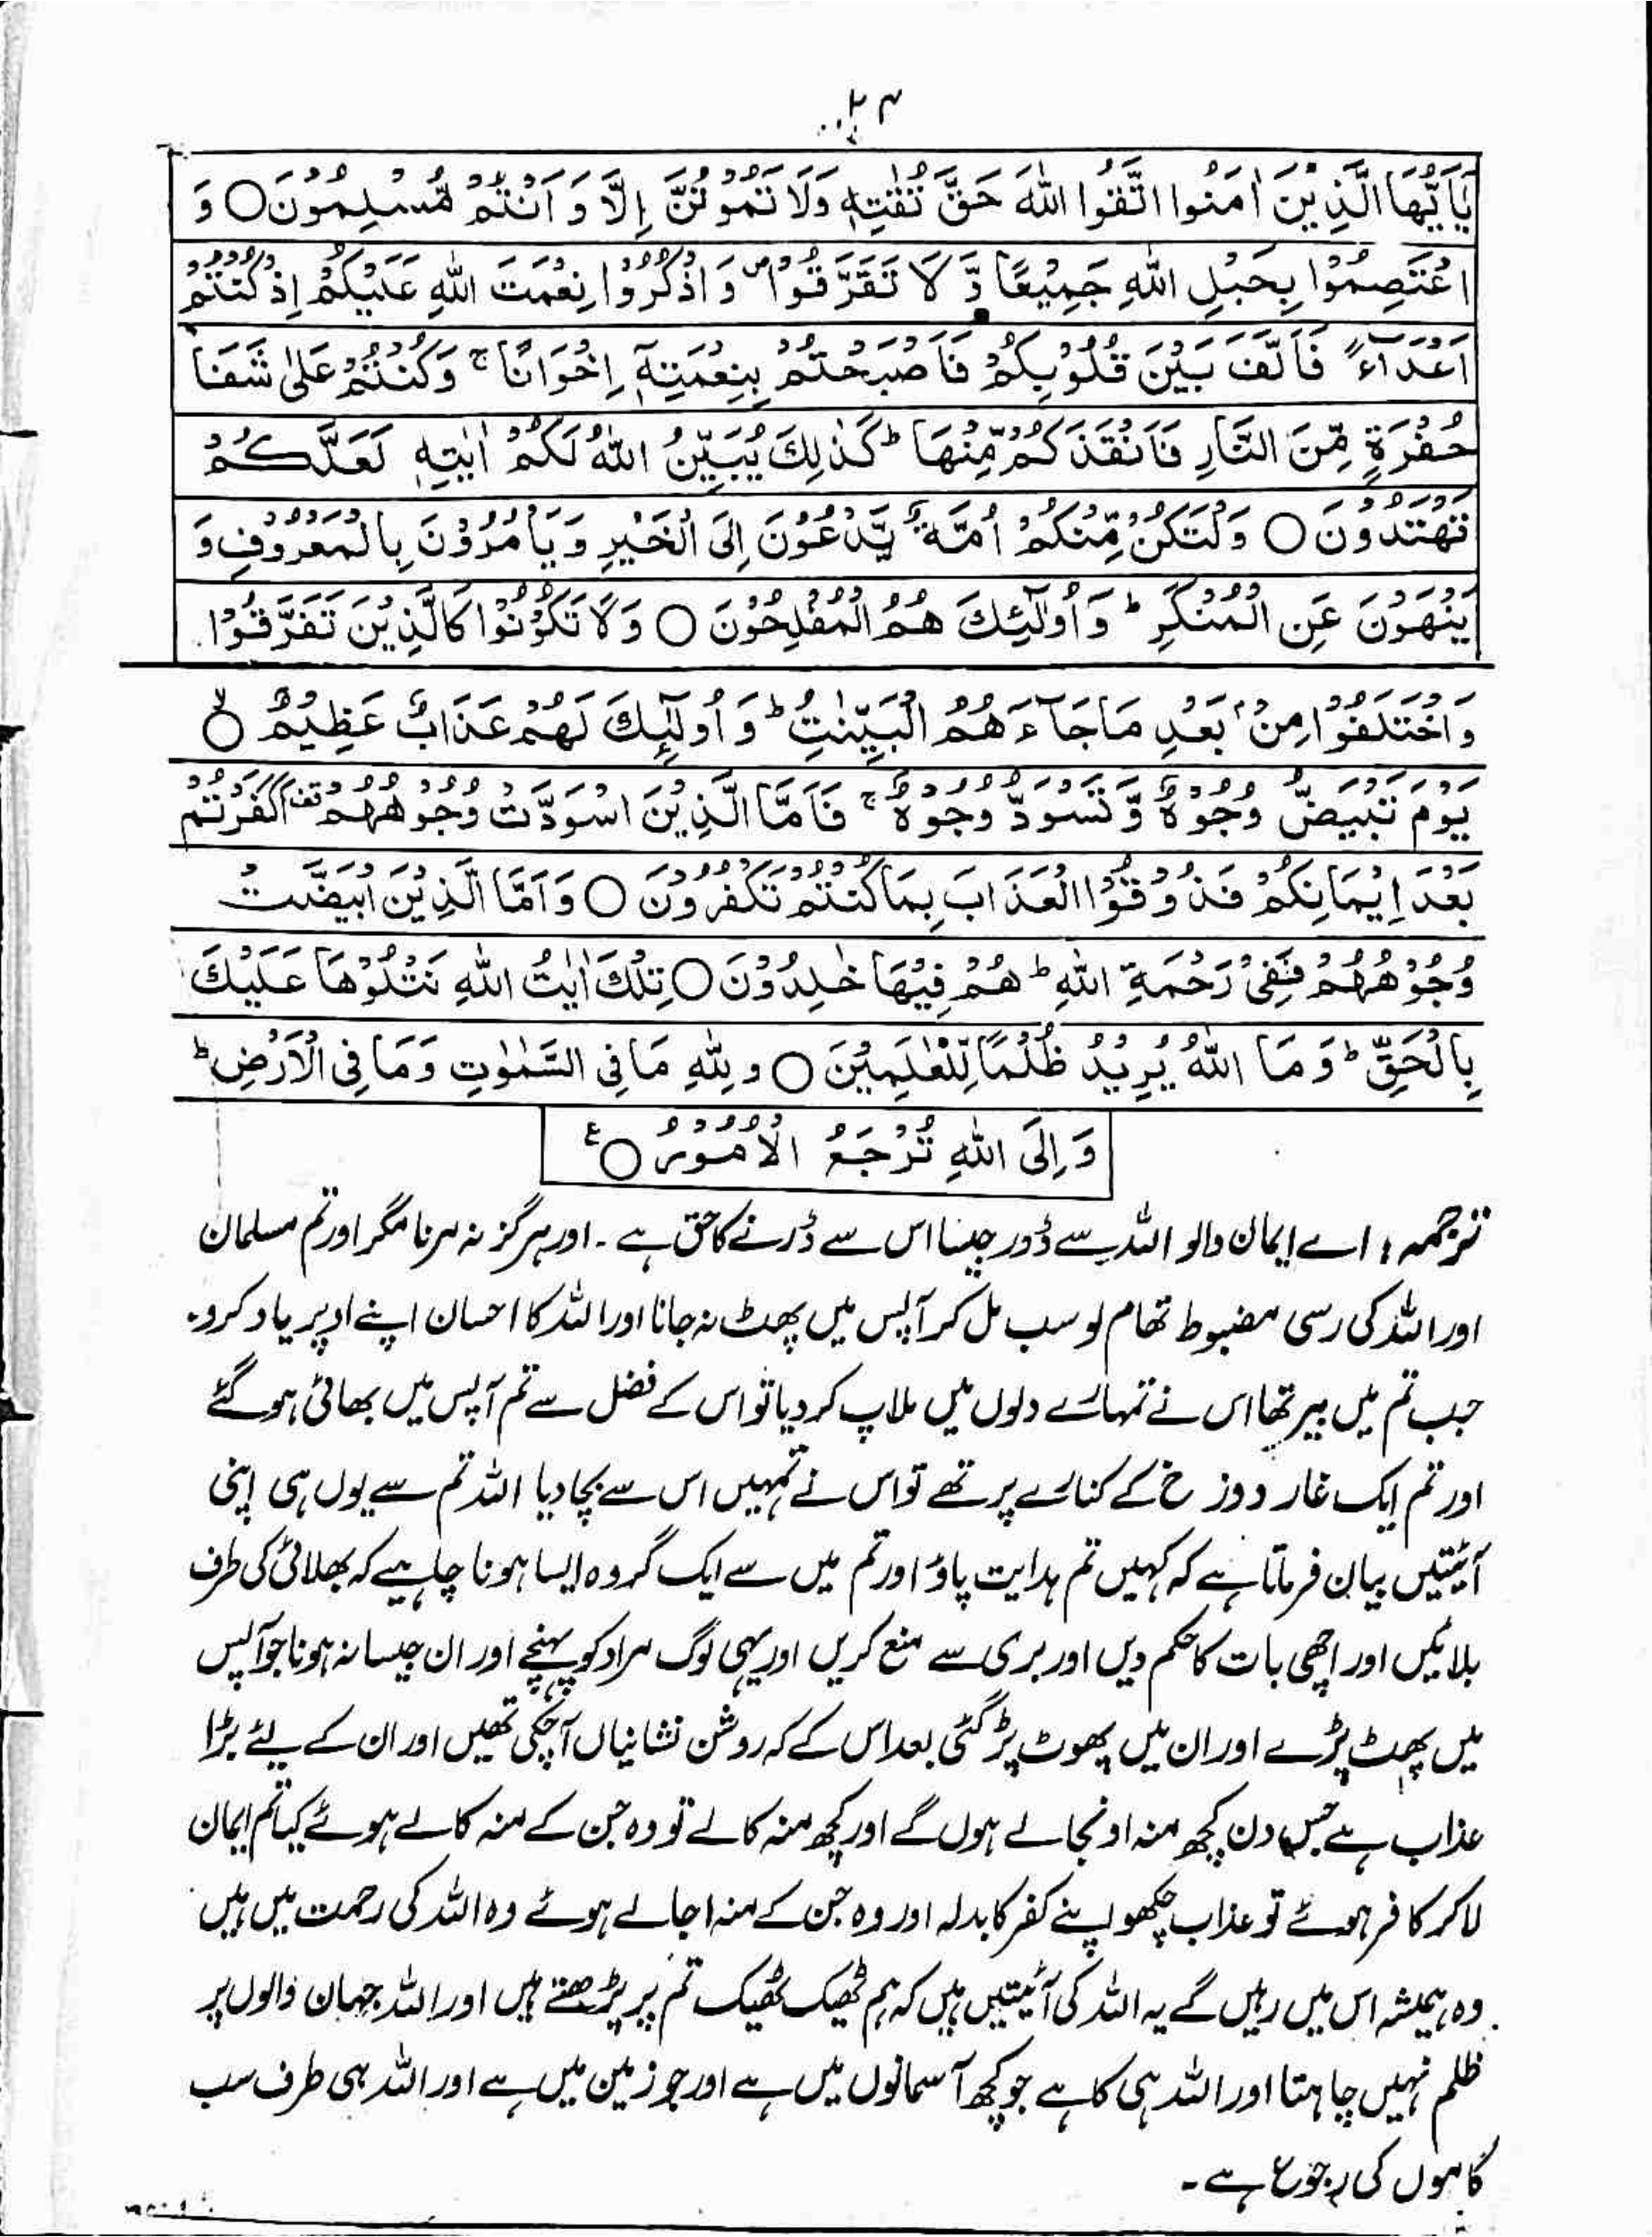 ۲۴
يٰٓاَيُّهَا الَّذِيْنَ اٰمَنُوا اتَّقُوا اللّٰهَ حَقَّ تُقٰتِهٖ وَلَا تَمُوْتُنَّ اِلَّا وَ اَنْتُمْ مُّسْلِمُوْنَ○ وَ
اعْتَصِمُوْا بِحَبْلِ اللّٰهِ جَمِيْعًا وَّ لَا تَفَرَّقُوْا ص وَ اذْكُرُوْا نِعْمَتَ اللّٰهِ عَلَيْكُمْ اِذْ كُنْتُمْ
اَعْدَآءً فَاَلَّفَ بَيْنَ قُلُوْبِكُمْ فَاَصْبَحْتُمْ بِنِعْمَتِهٖٓ اِخْوَانًا ۚ وَكُنْتُمْ عَلٰى شَفَا
حُفْرَةٍ مِّنَ النَّارِ فَاَنْقَذَكُمْ مِّنْهَا ؕ كَذٰلِكَ يُبَيِّنُ اللّٰهُ لَكُمْ اٰيٰتِهٖ لَعَلَّكُمْ
تَهْتَدُوْنَ ○ وَلْتَكُنْ مِّنْكُمْ اُمَّةٌ يَّدْعُوْنَ اِلَى الْخَيْرِ وَيَاْمُرُوْنَ بِالْمَعْرُوْفِ وَ
يَنْهَوْنَ عَنِ الْمُنْكَرِ ؕ وَ اُولٰٓئِكَ هُمُ الْمُفْلِحُوْنَ ○ وَ لَا تَكُوْنُوْا كَالَّذِيْنَ تَفَرَّقُوْا
وَاخْتَلَفُوْا مِنْۢ بَعْدِ مَا جَآءَهُمُ الْبَيِّنٰتُ ؕ وَ اُولٰٓئِكَ لَهُمْ عَذَابٌ عَظِيْمٌ ○ۙ
يَوْمَ تَبْيَضُّ وُجُوْهٌ وَّ تَسْوَدُّ وُجُوْهٌ ۚ فَاَمَّا الَّذِيْنَ اسْوَدَّتْ وُجُوْهُهُمْ قف اَكَفَرْتُمْ
بَعْدَ اِيْمَانِكُمْ فَذُوْقُوا الْعَذَابَ بِمَا كُنْتُمْ تَكْفُرُوْنَ ○ وَ اَمَّا الَّذِيْنَ ابْيَضَّتْ
وُجُوْهُهُمْ فَفِيْ رَحْمَةِ اللّٰهِ ؕ هُمْ فِيْهَا خٰلِدُوْنَ ○ تِلْكَ اٰيٰتُ اللّٰهِ نَتْلُوْهَا عَلَيْكَ
بِالْحَقِّ ؕ وَ مَا اللّٰهُ يُرِيْدُ ظُلْمًا لِّلْعٰلَمِيْنَ ○ و لِلّٰهِ مَا فِى السَّمٰوٰتِ وَ مَا فِى الْاَرْضِ ؕ
وَ اِلَى اللّٰهِ تُرْجَعُ الْاُمُوْرُ ○ ع
ترجمہ: اے ایمان والو اللہ سے ڈرو جیسا اس سے ڈرنے کا حق ہے ۔ اور ہرگز نہ مرنا مگر اور تم مسلمان
اور اللہ کی رسی مضبوط تھام لو سب مل کر آپس میں پھٹ نہ جانا اور اللہ کا احسان اپنے اوپر یاد کرو۔
جب تم میں بیر تھا اس نے تمہارے دلوں میں ملاپ کر دیا تو اس کے فضل سے تم آپس میں بھائی ہو گئے
اور تم ایک غار دوزخ کے کنارے پر تھے تو اس نے تمہیں اس سے بچا دیا اللہ تم سے یوں ہی اپنی
آیتیں بیان فرماتا ہے کہ کہیں تم ہدایت پاؤ اور تم میں سے ایک گروہ ایسا ہونا چاہیے کہ بھلائی کی طرف
بلائیں اور اچھی بات کا حکم دیں اور بری سے منع کریں اور یہی لوگ مراد کو پہنچے اور ان جیسا نہ ہونا جو آپس
میں پھٹ پڑے اور ان میں پھوٹ پڑ گئی بعد اس کے کہ روشن نشانیاں آ چکی تھیں اور ان کے لئے بڑا
عذاب ہے جس دن کچھ منہ اونجالے ہوں گے اور کچھ منہ کالے تو وہ جن کے منہ کالے ہوئے کیا تم ایمان
لا کر کافر ہوئے تو عذاب چکھو اپنے کفر کا بدلہ اور وہ جن کے منہ اجالے ہوئے وہ اللہ کی رحمت میں ہیں
وہ ہمیشہ اس میں رہیں گے یہ اللہ کی آیتیں ہیں کہ ہم ٹھیک ٹھیک تم پر پڑھتے ہیں اور اللہ جہان والوں پر
ظلم نہیں چاہتا اور اللہ ہی کا ہے جو کچھ آسمانوں میں ہے اور جو زمین میں ہے اور اللہ ہی طرف سب
کاموں کی رجوع ہے۔